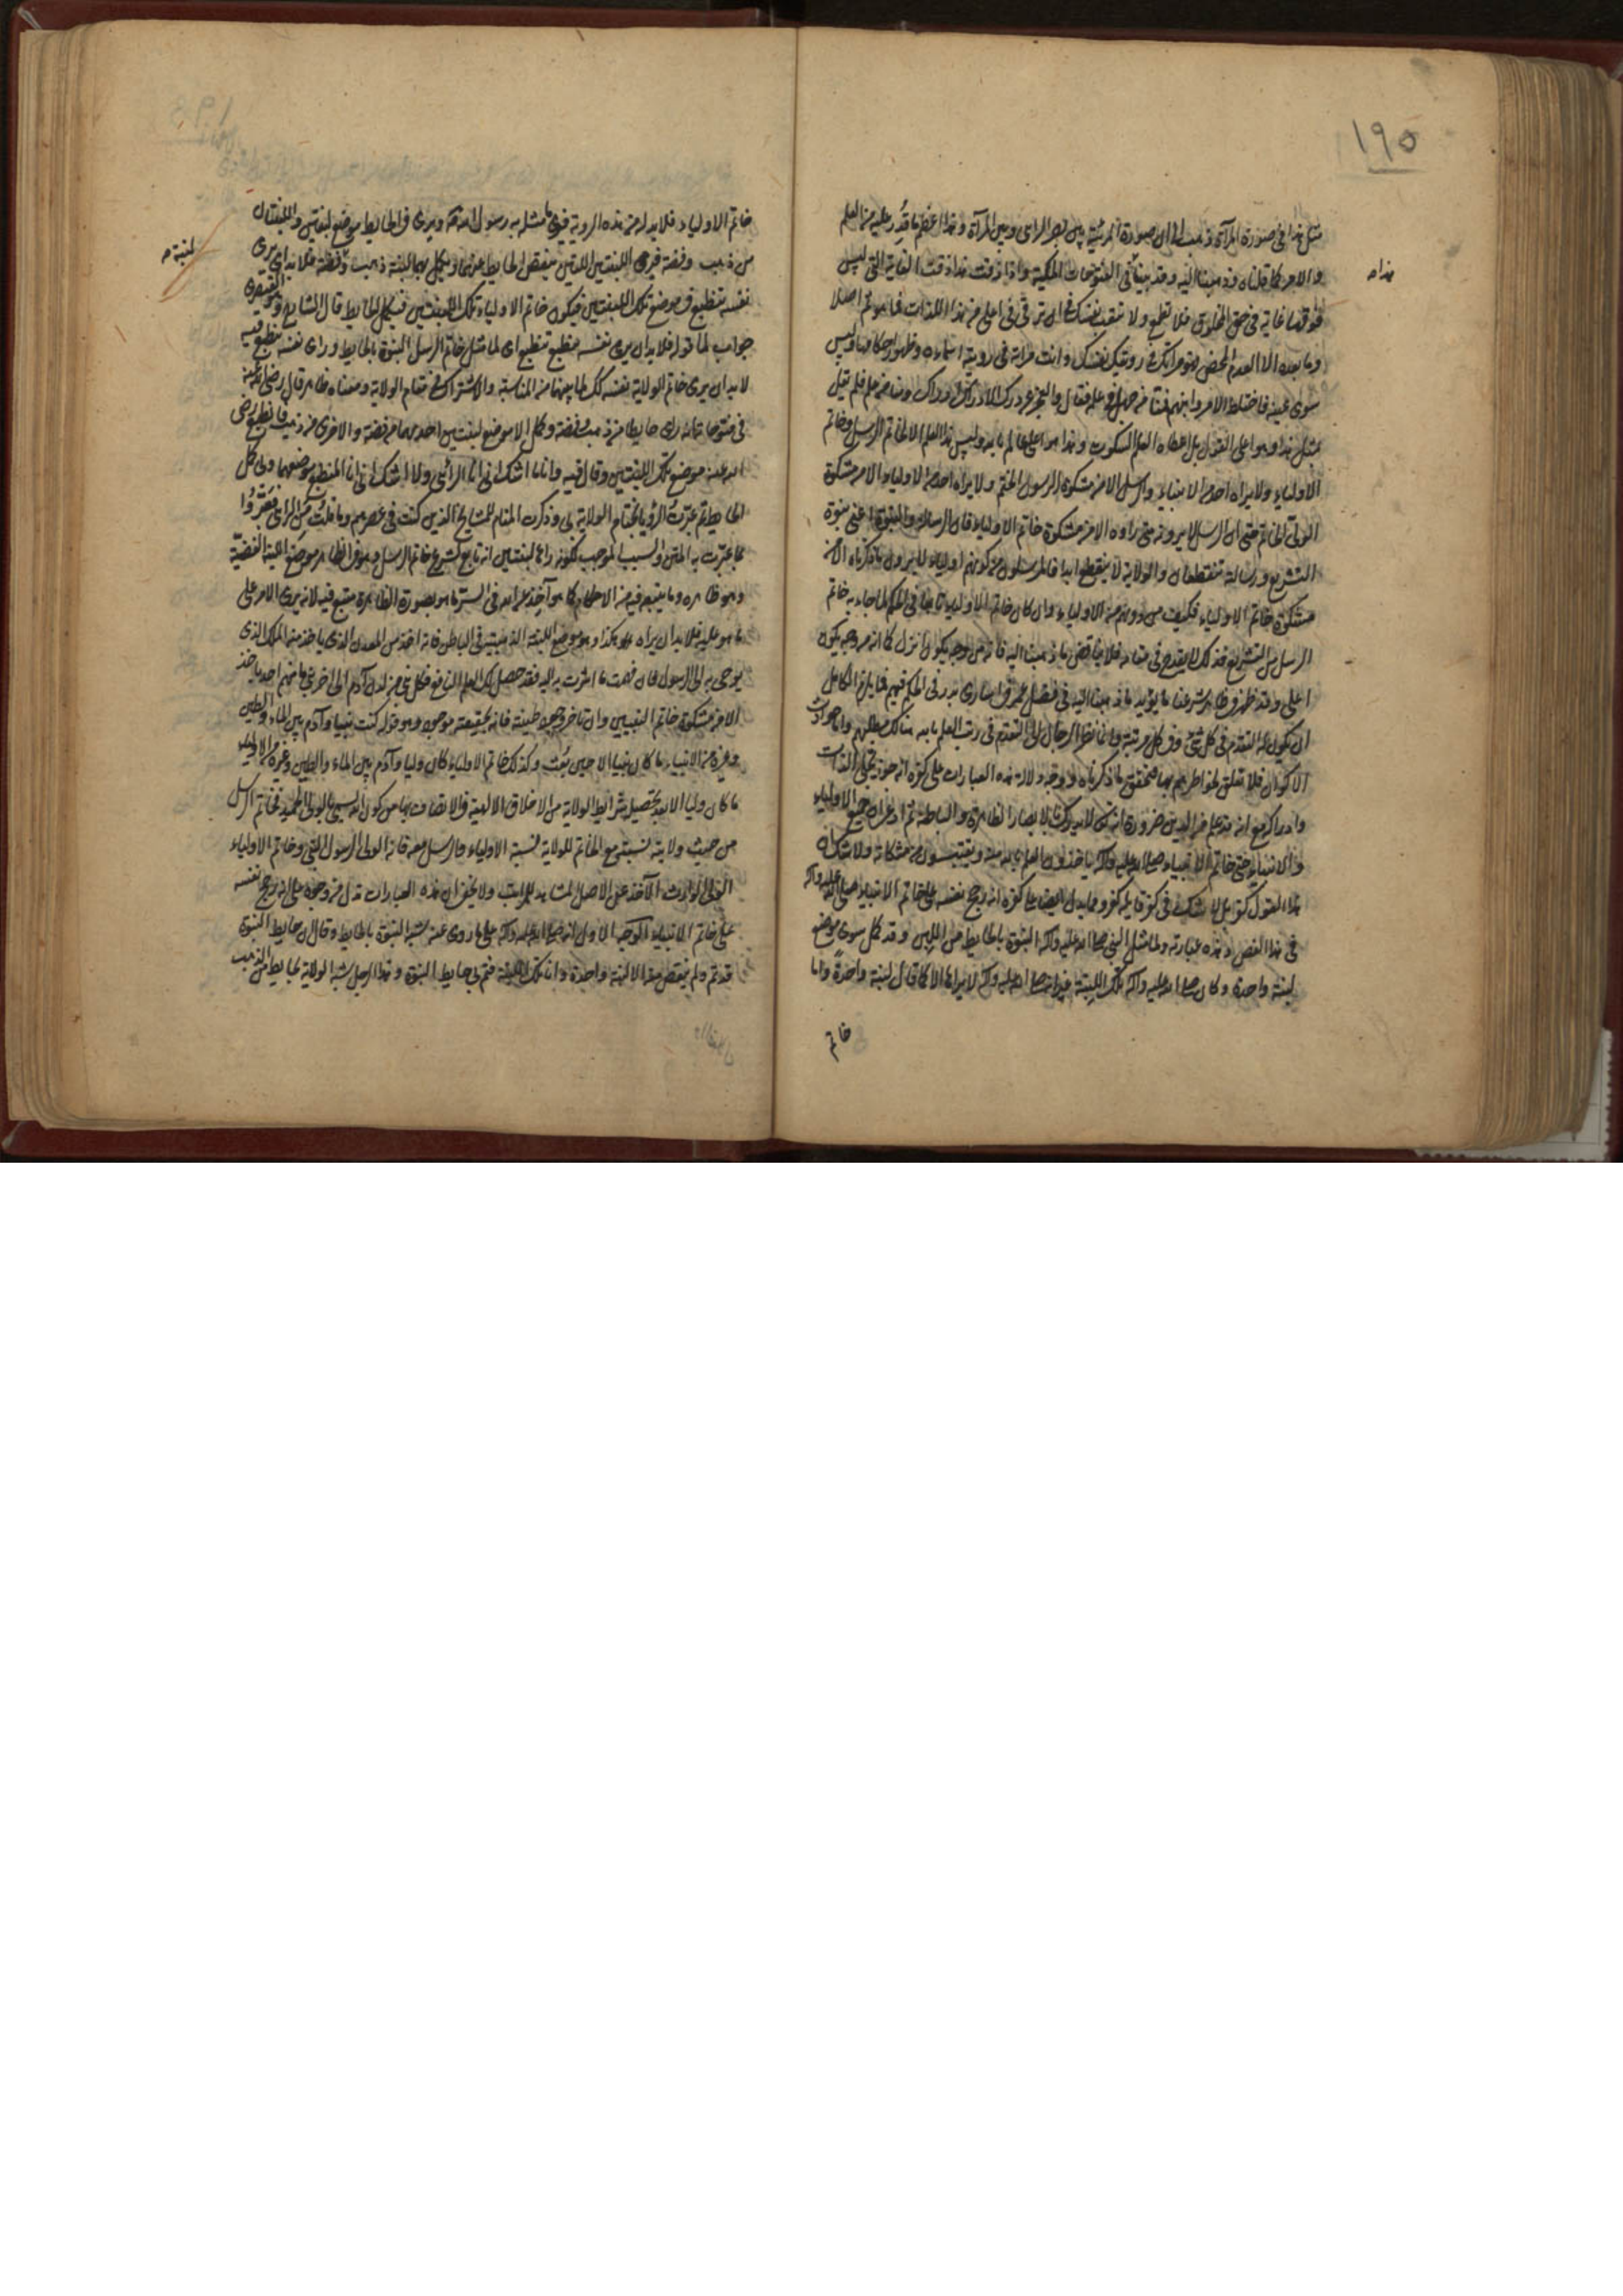 ١٩٥
مثل هذا في صورة المرآة ذهب الى ان الصورة المرئية بين بصر الرائى وبين المرآة وهذا اعظم ما قدر عليه من العلم
والامر كما قلناه وذهبنا اليه وقد بينا فى الفتوحات المكية واذا ذقت هذا ذقت الغاية التى ليس
هذا
فوقها غاية فى حق المخلوق فلا تطمع ولا تتعب نفسك فى ان ترقى فى اعلى من هذا فما هو ثم اصلا
وما بعده الا العدم المحض فهو مرآتك فى رؤيتك نفسك وانت مرآته فى رؤية اسمائه وظهور احكامها وليس
سوى عينه فاختلط الامر وانبهم فمنا من جهل فى علمه فقال والعجز عن درك الادراك ادراك ومنا من علم فلم يقل
مثل هذا وهو اعلى القول بل اعطاه العلم السكوت وهذا هو اعلى عالم بالله وليس هذا العلم الا لخاتم الرسل وخاتم
الاولياء ولا يراه احد من الانبياء والرسل الا من مشكوة الرسول الختم ولا يراه احد من الاولياء الا من مشكوة
الولى الخاتم حتى ان الرسل لا يرونه متى راوه الا من مشكوة خاتم الاولياء فان الرسالة والنبوة اعنى نبوة
التشريع ورسالته تنقطعان والولاية لا تنقطع ابدا فالمرسلون من كونهم اولياء لا يرون ما ذكرناه الا من
مشكوة خاتم الاولياء فكيف من دونهم من الاولياء وان كان خاتم الاولياء تابعا فى الحكم لما جاء به خاتم
الرسل من التشريع فذلك لا يقدح فى مقامه ولا يناقض ما ذهبنا اليه فانه من وجه يكون انزل كما انه من وجه يكون
اعلى وقد ظهر فى ظاهر شرعنا ما يؤيد ما ذهبنا اليه فى فضل عمر فى اسارى بدر فى الحكم فيهم فما يلزم الكامل
ان يكون له التقدم فى كل شئ وفى كل مرتبة وانما نظر الرجال الى التقدم فى رتب العلم بالله هنالك مطلبهم واما حوادث
الاكوان فلا تعلق لخواطرهم بها فتحقق ما ذكرناه ووجه دلالة هذه العبارات على كفره انه جوز تجلى الذات
وادراكه مع انه قد علم من الدين ضرورة انه لا يدرك بالابصار الظاهرة والباطنة ثم ادعى ان جميع الاولياء
والانبياء حتى خاتم الانبياء صلى الله عليه وآله ياخذون العلم بالله منه ويقتبسون من مشكاته ولا شك ان
هذا القول كفر بل لا شك فى كفر قايله كفر ومما يدل ايضا على كفره انه رجح نفسه على خاتم الانبياء صلى الله عليه وآله
فى هذا الفص وهذه عبارته ولما مثل النبى صلى الله عليه وآله النبوة بالحايط من اللبن وقد كمل سوى موضع
لبنة واحدة وكان صلى الله عليه وآله تلك اللبنة غير انه صلى الله عليه وآله لا يراها الا كما قال لبنة واحدة واما
خاتم
خاتم الاولياء فلا بد له من هذه الروية فيرى ما مثله به رسول الله ويرى فى الحايط موضع لبنتين واللبنتان
من ذهب وفضة فيرى اللبنتين اللتين ينقص الحايط عنهما ويكمل بهما لبنة ذهب وفضة فلا بد ان يرى
لبنة
نفسه تنطبع فى موضع تلك اللبنتين فيكون خاتم الاولياء تلك اللبنتين فيكمل الحايط قال الشارح القيصرى
جواب لما قوله فلا بد ان يرى نفسه تنطبع اى لما مثل خاتم الرسل النبوة بالحايط وراى نفسه تنطبع فيه
لا بد ان يرى خاتم الولاية نفسه كذلك لما بينهما من المناسبة والاشتراك فى مقام الولاية ومعناه ظاهر قال رضى الله عنه
فى فتوحاته انه راى حايطا من ذهب وفضة وكمل الا موضع لبنتين احديهما من فضة والاخرى من ذهب فانطبع رضى
الله عنه موضع تلك اللبنتين وقال فيه وانا لا اشك انى انا الرائى ولا اشك انى انا المنطبع موضعهما وبى كمل
الحايط ثم عبرت الرؤيا بختام الولاية بى وذكرت المنام للمشايخ الذين كنت فى عصرهم وما قلت من الرائى فعبروا
بما عبرت به المتن والسبب الموجب لكونه راها لبنتين انه تابع لشرع خاتم الرسل فى الظاهر وهو موضع اللبنة الفضية
وهو ظاهره وما يتبعه فيه من الاحكام كما هو آخذ عن الله فى السر ما هو بصورة الظاهرة متبع فيه لانه يرى الامر على
ما هو عليه فلا بد ان يراه هكذا وهو موضع اللبنة الذهبية فى الباطن فانه اخذ من المعدن الذى ياخذ منه الملك الذى
يوحى به الى الرسول فان فهمت ما اشرت به اليه فقد حصل لك العلم النافع فكل نبى من لدن آدم الى آخر نبى ما منهم احد ياخذ
الا من مشكوة خاتم النبيين وان تاخر وجود طينته فانه بحقيقته موجود وهو قوله كنت نبيا وآدم بين الماء والطين
وغيره من الانبياء ما كان نبيا الا حين بعث وكذلك خاتم الاولياء كان وليا وآدم بين الماء والطين وغيره من الاولياء
ما كان وليا الا بعد تحصيل شرائط الولاية من الاخلاق الالهية والاتصاف بها من كون الله يسمى بالولى الحميد فخاتم الرسل
من حيث ولايته نسبته مع الخاتم للولاية نسبة الاولياء والرسل معه فانه الولى الرسول النبى وخاتم الاولياء
الولى الوارث الآخذ عن الاصل المشاهد للمراتب ولا يخفى ان هذه العبارات تدل من وجوه على انه رجح نفسه
على خاتم الانبياء الوجه الاول انه صلى الله عليه وآله على ما روى عنه شبه النبوة بالحايط وقال ان حايط النبوة
قد تم ولم ينقص منه الا لبنة واحدة وانا تلك اللبنة فتم بى حايط النبوة وهذا الرجل شبه الولاية بحايط من الذهب